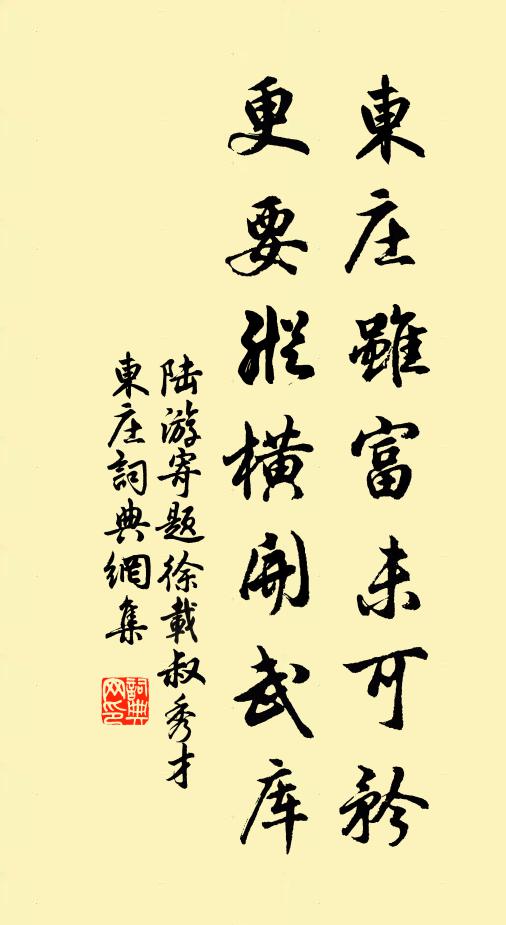 東庄雖富未可矜
更要縱橫開武库
陆游寄题徐載叔秀才
東庄詞典網集
詞典网印